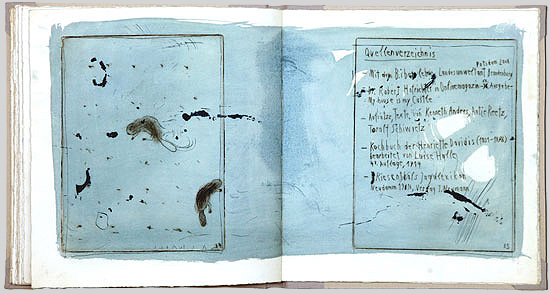 Quellenverzeichnis
Potsdam 2004
- Mit dem Biber leben, Landesumweltamt Brandenburg
- Dr. Robert in Onlinemagazin Ausgabe:
My house is my Castle
- Aufsätze, Texte, von Kenneth Anders, Antje Reetz,
Toralf Schiwietz
- Kochbuch der Henriette Davidis (1801-1876)
bearbeitet von Luise Holle
41. Auflage, 1904
- Riesenthals Jagdlexikon
Neudamm, Verlag J. Neumann